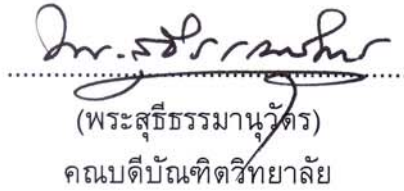 (พระสุธีธรรมานุวัตร)
คณบดีบัณฑิตวิทยาลัย